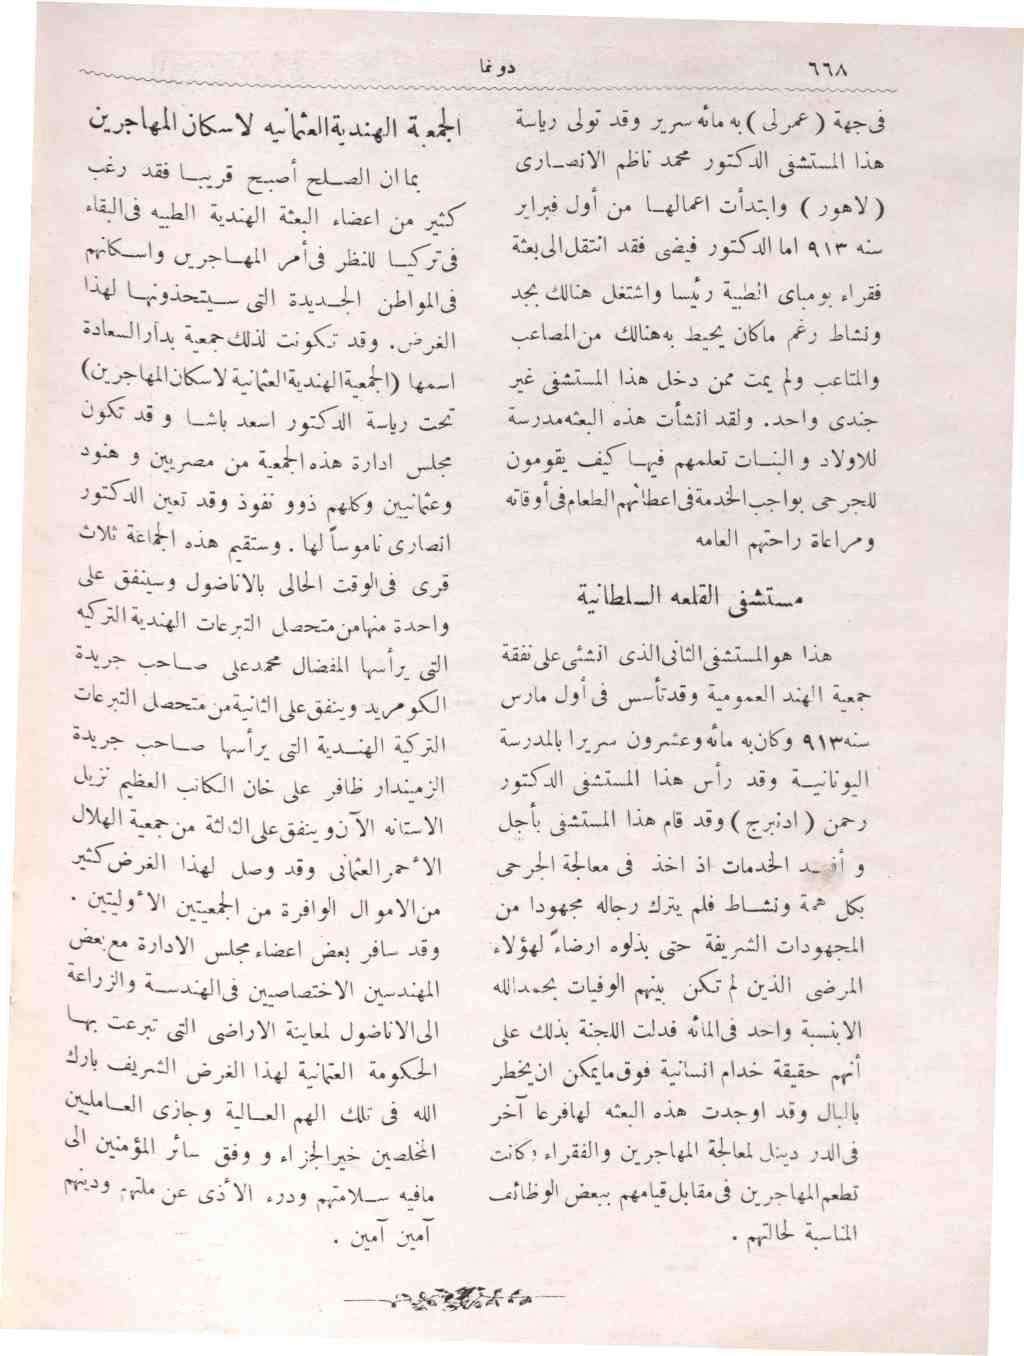 ٦٦٨
دوغا
فى جهة ( عمرلى ) به مائه سرير وقد تولى رياسة
هذا المستشفى الدكتور محمد ناظم الانصارى
( لاهور ) وابتدأت اعمالها من أول فبراير
سنه ٩١٣ اما الدكتور فيضى فقد انتقل الى بعثة
فقراء بومباى الطبية رئيسا واشتغل هنالك بجد
ونشاط رغم ماكان يحيط به هنالك من المصاعب
والمتاعب ولم يمت ممن دخل هذا المستشفى غير
جندى واحد. ولقد انشأت هذه البعثه مدرسة
للاولاد و البنات تعلمهم فيها كيف يقومون
للجرحى بواجب الخدمة فى اعطائهم الطعام فى أوقاته
ومراعاة راحتهم العامه
مستشفى القلعه السلطانية
هذا هو المستشفى الثانى الذى انشئى على نفقة
جمعية الهند العمومية وقد تأسس فى أول مارس
سنه ٩١٣ وكان به مائه وعشرون سريرا بالمدرسة
اليونانية وقد رأس هذا المستشفى الدكتور
رحمن ( ادنبرج ) وقد قام هذا المستشفى بأجل
و أفيد الخدمات اذ اخذ فى معالجة الجرحى
بكل همة ونشاط فلم يترك رجاله مجهودا من
المجهودات الشريفة حتى بذلوه ارضاءً لهؤلاء
المرضى الذين لم تكن بينهم الوفيات بحمدالله
الابنسبة واحد فى المائه فدلت اللجنة بذلك على
أنهم حقيقة خدام انسانية فوق مايمكن ان يخطر
بالبال وقد اوجدت هذه البعثه لهافرعا آخر
فى الدر دينل لمعالجة المهاجرين والفقراء وكانت
تطعم المهاجرين فى مقابل قيامهم ببعض الوظائف
المناسبة لحالتهم .
الجمعية الهندية العثمانيه لاسكان المهاجرين
بماان الصلح أصبح قريبا فقد رغب
كثير من اعضاء البعثة الهندية الطبيه فى البقاء
فى تركيا للنظر فى أمر المهاجرين واسكانهم
فى المواطن الجديدة التى سيتخذونها لهذا
الغرض. وقد تكونت لذلك جمعية بدار السعادة
اسمها (الجمعية الهندية العثمانية لاسكان المهاجرين)
تحت رياسة الدكتور اسعد باشا و قد تكون
مجلس ادارة هذه الجمعية من مصريين و هنود
وعثمانيين وكلهم ذوو نفوذ وقد تعين الدكتور
انصارى ناموساً لها . وستقيم هذه الجماعة ثلاث
قرى فى الوقت الحالى بالاناضول وسينفق على
واحدة منهامن متحصل التبرعات الهندية التركيه
التى يرأسها المفضال محمدعلى صاحب جريدة
الكومريد وينفق على الثانية من متحصل التبرعات
التركية الهندية التى يرأسها صاحب جريدة
الزميندار ظافر على خان الكاتب العظيم نزيل
الاستانه الآن وينفق على الثالثة من جمعية الهلال
الأحمر العثمانى وقد وصل لهذا الغرض كثير
من الاموال الوافرة من الجمعيتين الأوليتين .
وقد سافر بعض اعضاء مجلس الادارة مع بعض
المهندسين الاختصاصيين فى الهندسة والزراعة
الى الاناضول لمعاينة الاراضى التى تبرعت بها
الحكومة العثمانية لهذا الغرض الشريف بارك
الله فى تلك الهم العالية وجازى العامليين
المخلصين خير الجزاء و وفق سائر المؤمنين الى
مافيه سلامتهم ودرء الأذى عن ملتهم ودينهم
آمين آمين .